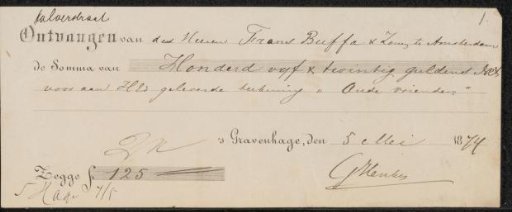 Kalverstraat
1.
Ontvangen van den Heeren Frans Buffa & Zonen te Amsterdam
de Somma van Honderd vyf & twintig guldens
voor aan HEd geleverde teekening "Oude vrienden"
's Gravenhage, den 5 Mei 1874
Zegge ƒ 125
5 Mei 7/5